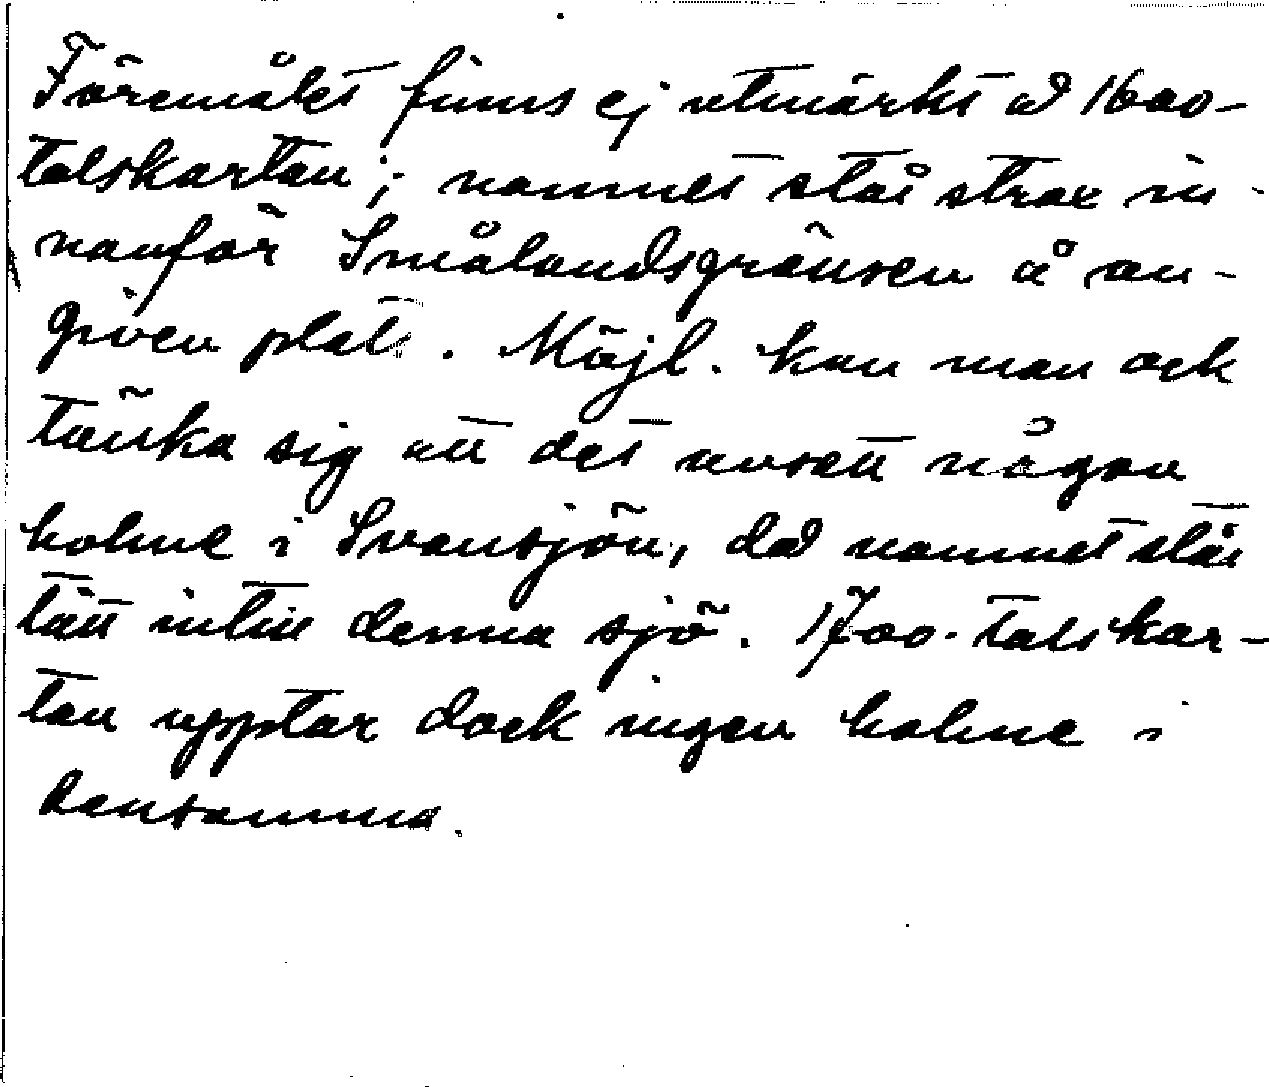 Föremålet finns ej utmärkt å 1600-
talskartan; namnet står strax in-
nanför Smålandsgränsen å an-
given plats. Möjl. kan man ock
tänka sig att det avsett någon
holme i Svansjön, då namnet står
tätt intill denna sjö. 1700-talskar-
tan upptar dock ingen holme i
densamma.